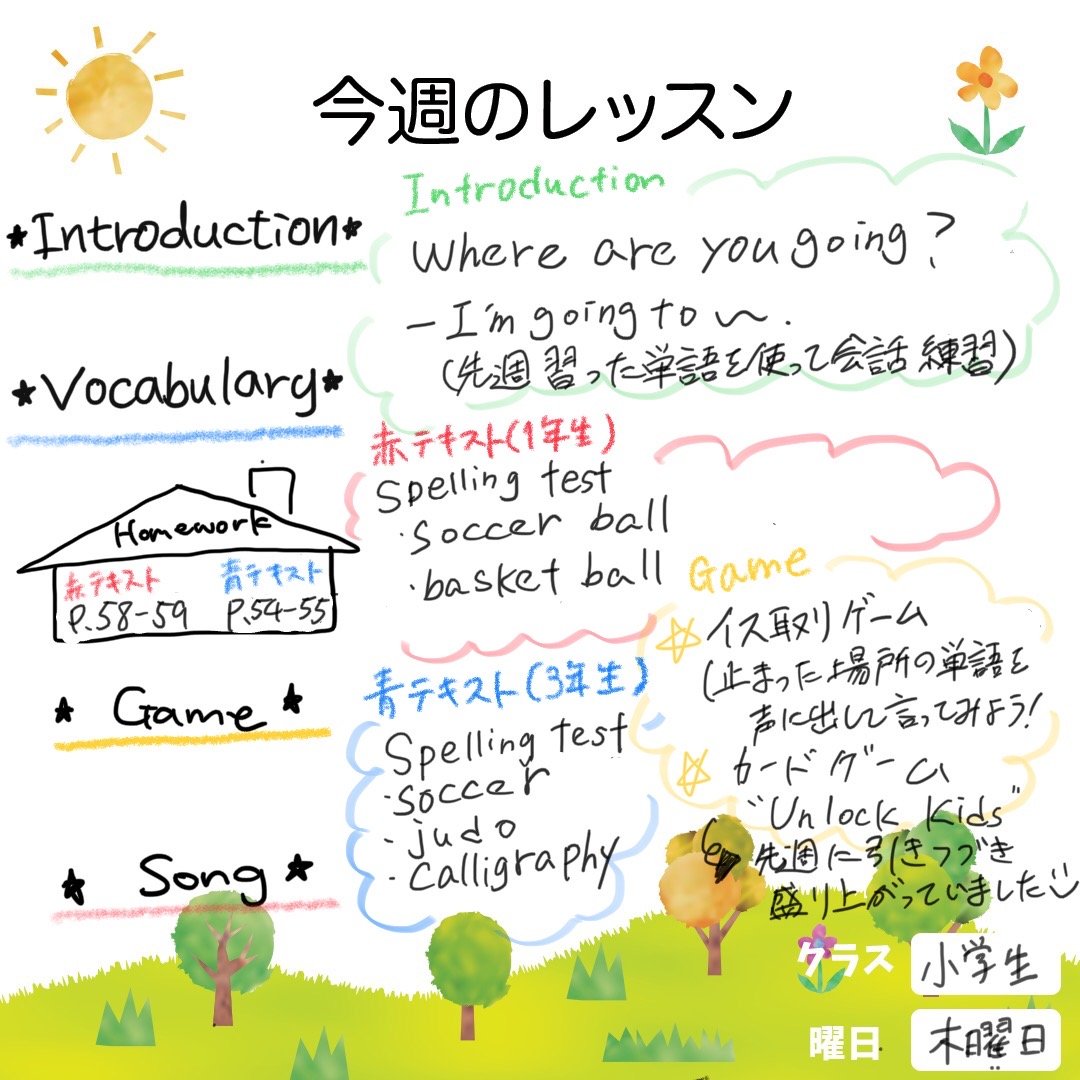 今週のレッスン
★Introduction★
Introduction
Where are you going?
－I'm going to 〜.
(先週習った単語を使って会話練習)
★Vocabulary★
赤テキスト(1年生)
Spelling test
・soccer ball
・basket ball
Homework
赤テキスト 青テキスト
P.58-59 P.54-55
青テキスト(3年生)
Spelling test
・soccer
・judo
・calligraphy
★ Game ★
Game
☆イス取りゲーム
(止まった場所の単語を
声に出して言ってみよう!
☆カードゲーム
"Unlock Kids"
↳先週に引きつづき
盛り上がっていました
★ Song ★
クラス 小学生
曜日 木曜日